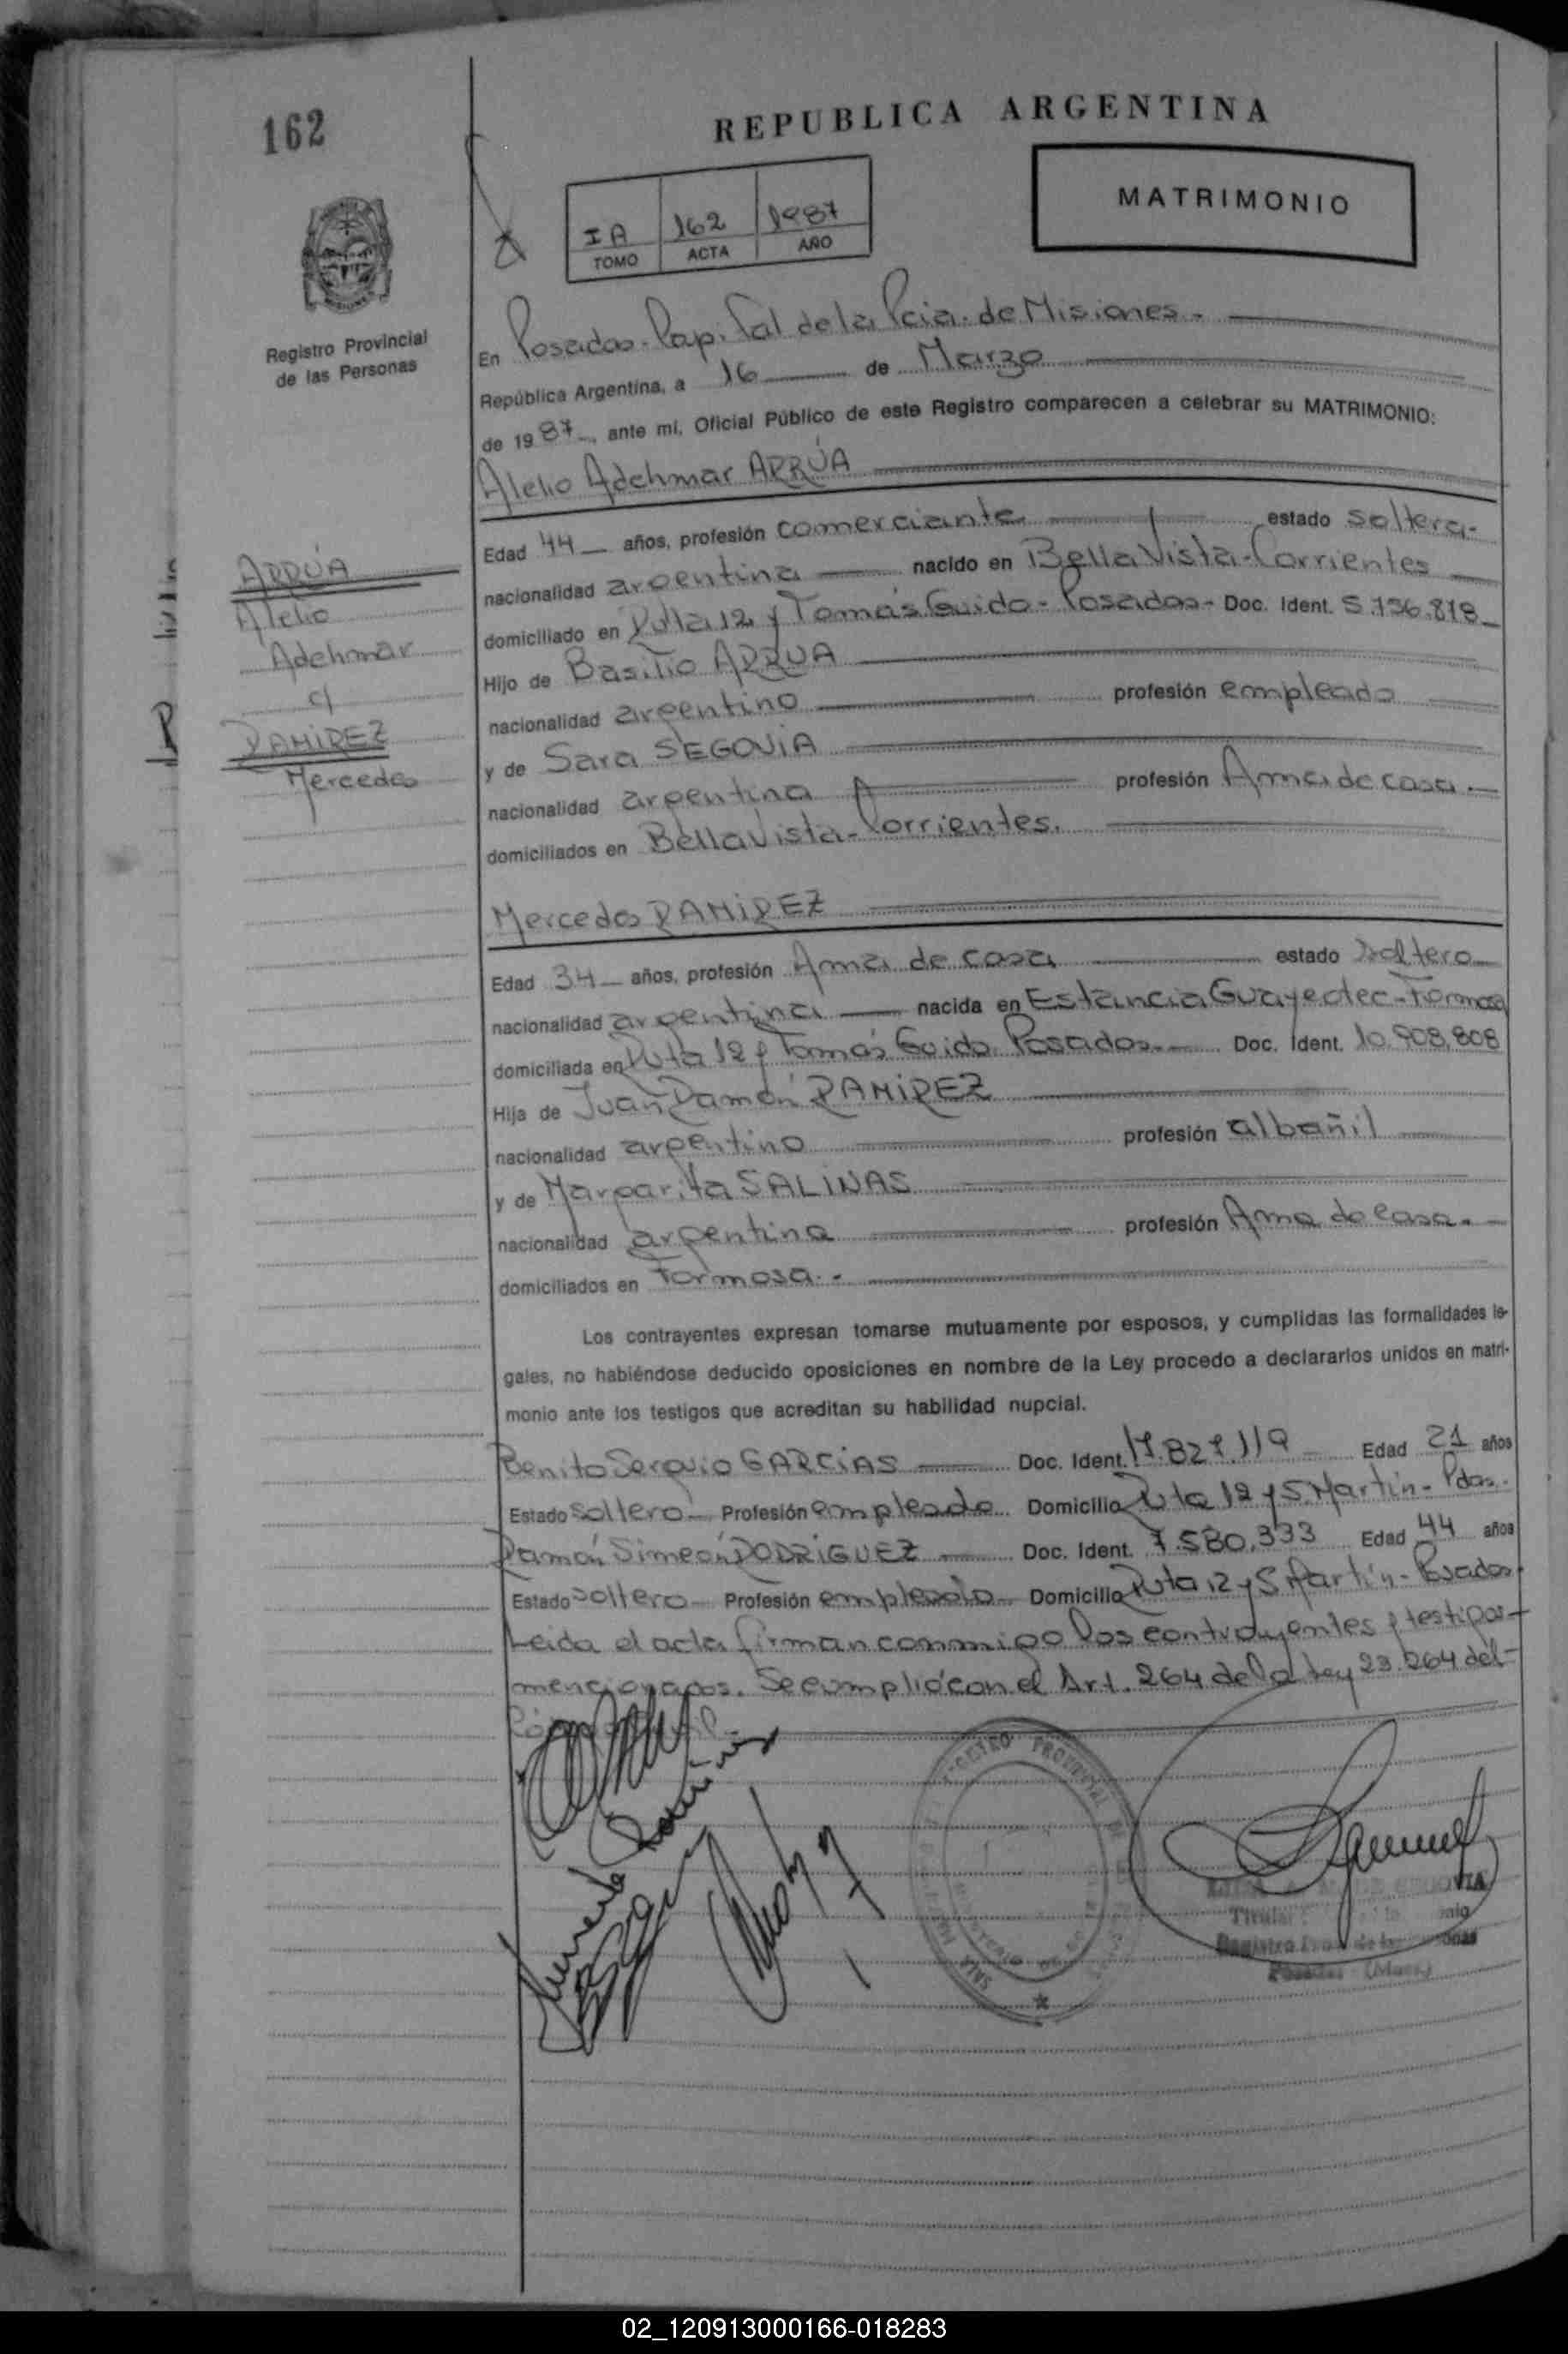 162
REPUBLICA ARGENTINA
MATRIMONIO
IA 162 1987
TOMO ACTA AÑO
Registro Provincial
de las Personas
En Posadas - Capital de la Pcia. de Misiones.-
República Argentina, a 16 de Marzo
de 1987, ante mí, Oficial Público de este Registro comparecen a celebrar su MATRIMONIO:
Alelio Adehmar ARRÚA
Edad 44 años, profesión comerciante estado soltera.
nacionalidad argentina nacido en Bella Vista - Corrientes
domiciliado en Ruta 12 y Tomás Guido - Posadas - Doc. Ident. 5.756.818
Hijo de Basilio ARRUA
nacionalidad argentino profesión empleado
y de Sara SEGOVIA
nacionalidad argentina profesión Ama de casa.
domiciliados en Bella Vista - Corrientes.
ARRÚA
Alelio
Adehmar
c/
RAMIREZ
Mercedes
Mercedes RAMIREZ
Edad 34 años, profesión Ama de casa estado soltero
nacionalidad argentina nacida en Estancia Guayeotec - Formosa
domiciliada en Ruta 12 y Tomás Guido. Posadas.- Doc. Ident. 10.908.808
Hija de Juan Ramón RAMIREZ
nacionalidad argentino profesión albañil
y de Margarita SALINAS
nacionalidad argentina profesión Ama de Casa.
domiciliados en Formosa.-
Los contrayentes expresan tomarse mutuamente por esposos, y cumplidas las formalidades le-
gales, no habiéndose deducido oposiciones en nombre de la Ley procedo a declararlos unidos en matri-
monio ante los testigos que acreditan su habilidad nupcial.
Benito Sergio GARCIAS Doc. Ident. 17.827.119 Edad 21 años
Estado soltero Profesión empleado Domicilio Ruta 12 y S. Martín - Pdas.
Ramón Simeón RODRIGUEZ Doc. Ident. 7.580.333 Edad 44 años
Estado soltero Profesión empleado Domicilio Ruta 12 y S. Martín - Posadas.
Leida el acta firman conmmigo los contrayentes y testigos
mencionados. Se cumplió con el Art. 264 de la Ley 23.264 del
REGISTRO PROVINCIAL DE
MINISTERIO DE
SEGOVIA
Titular
Registro Prov. de las Personas
Posadas (Mnes.)
02_120913000166-018283